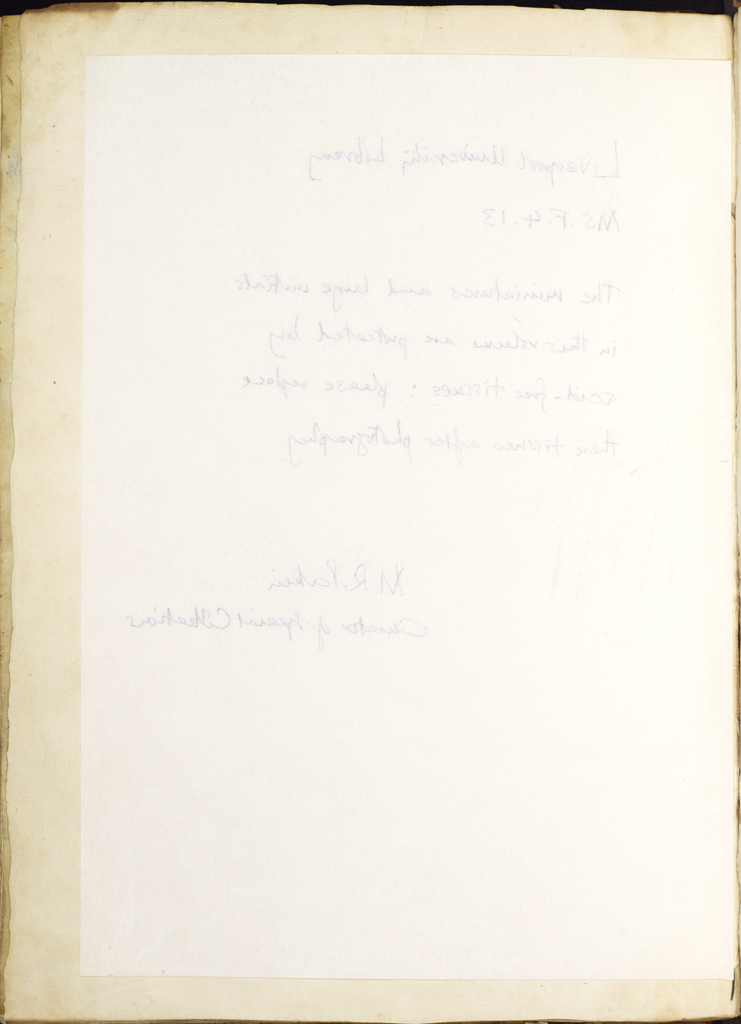 Liverpool University Library
MS. F. 4. 13
The miniatures and large initials
in this volume are protected by
acid-free tissues : please replace
their tissues after photography
M. R. Perkin
Curator of Special Collections